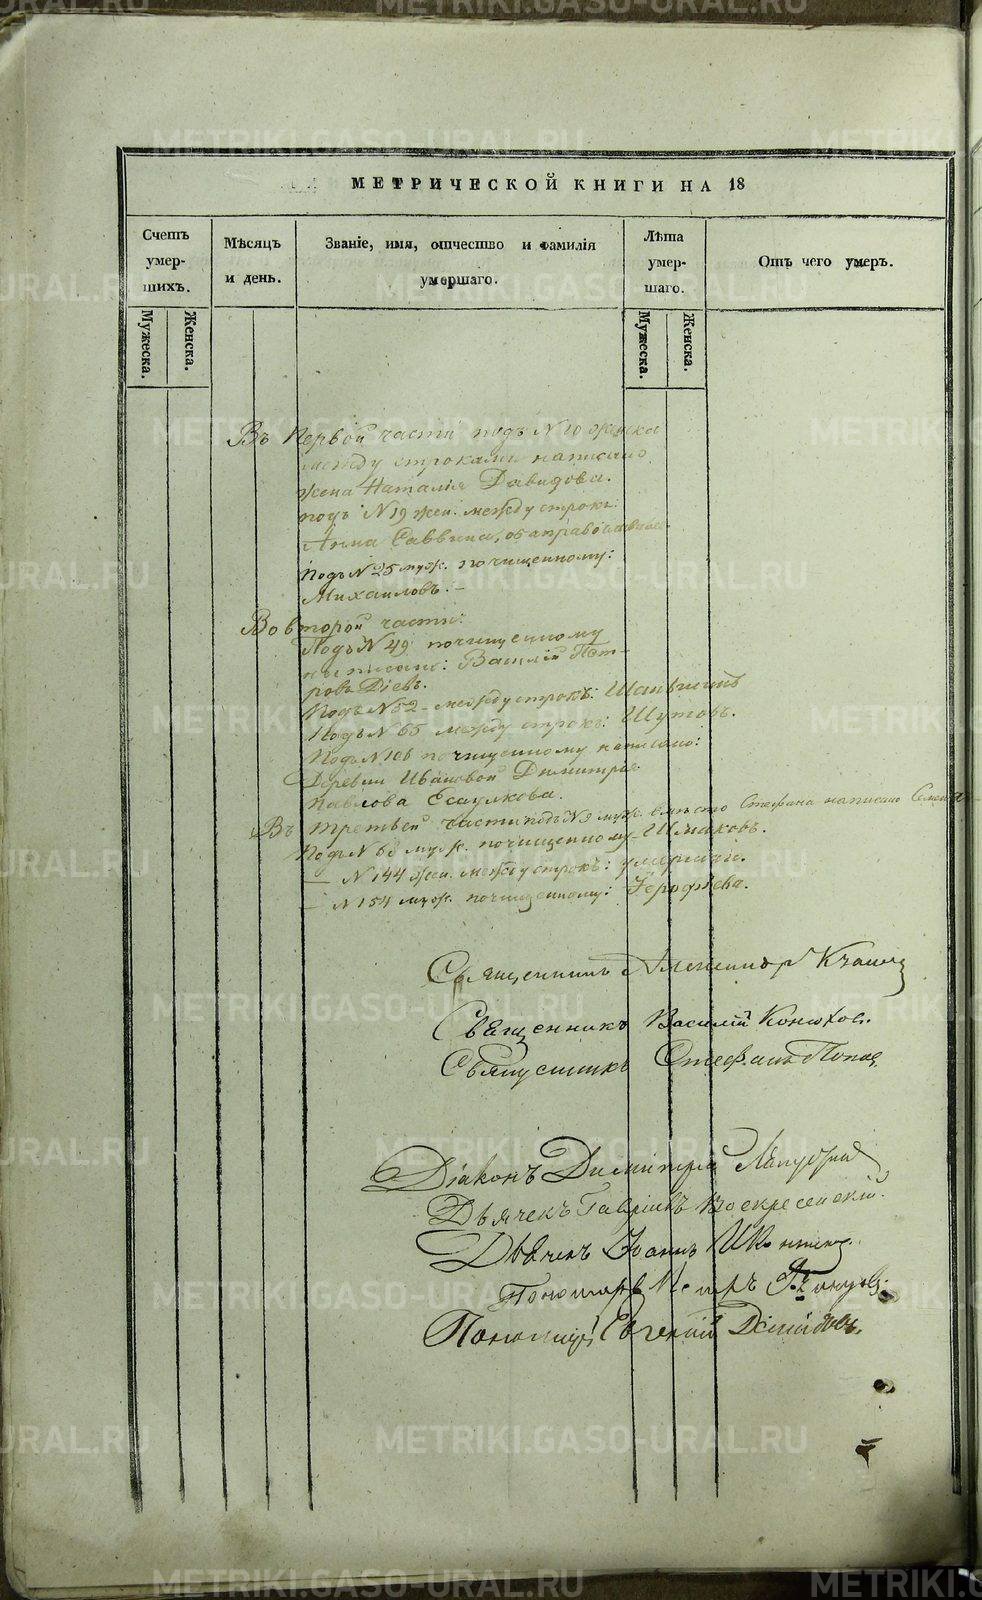 МЕТРИЧЕСКОЙ КНИГИ НА 18
Счетъ умер- шихъ.
Мѣсяцъ и день.
Званіе, имя, отчество и фамилія умершаго.
Лѣта умер- шаго.
Отъ чего умеръ.
Мужеска.
Женска.
Мужеска.
Женска.
Въ Первой части подъ N 10 женска
между строками написано
жена Наталія Давидова.
подъ N 19 жен. между строкъ:
Анна Саввина, оба православнаго
Подъ N 25 муж. почищенному:
Михаиловъ. –
Во второй части:
Подъ N 49 почищенному
написано: Василій Пет-
ровъ Діевъ.
Подъ N 52 – между строкъ:
Подъ N 65 между строкъ: Шутовъ.
Подъ N 106 почищенному написано:
Деревни Ивановой Димитрія
Павлова Есаулкова.
Въ третьей части подъ N 9 муж. вмѣсто Стефана написано Семена
Подъ N 63 муж. почищенному: Шмаковъ.
— N 144 жен. между строкъ: умершаго.
— N 154 муж. почищенному: Ерофѣева.
Священникъ Александръ
Священникъ Василій Конюхов.
Священникъ Стефанъ Попов
Діаконъ Димитрій
Дьячекъ Гавріилъ Воскресенскій.
Дьячекъ Іоаннъ
Пономарь Петръ
Пономарь Евгеній
METRIKI.GASO-URAL.RU